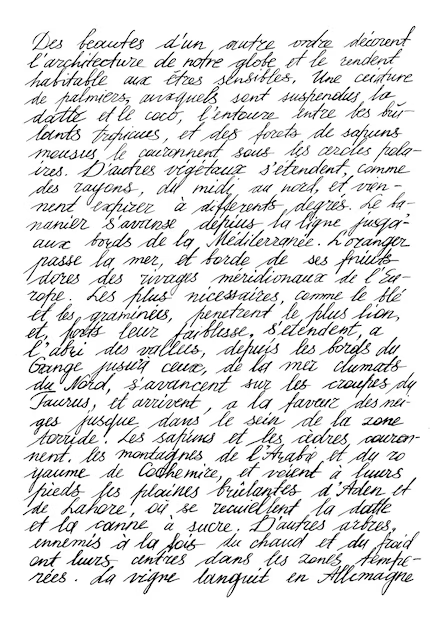 Des beautes d'un autre ordre décorent
l'architecture de notre globe et le rendent
habitable aux êtres sensibles. Une ceinture
de palmiers, auxquels sont suspendus la
datte et le coco, l'entoure entre les brû-
lants tropiques, et des forets de sapins
mousus le couronnent sous les cercles pola-
ires. D'autres végétaux s'étendent, comme
des rayons, du midi au nord, et vien-
nent expirer à differents degrés. Le ba-
nanier s'avanse depuis la ligne jusqu'
aux bords de la Mediterranée. L'oranger
passe la mer, et borde de ses fruits
dores des rivages méridionaux de l'Eu-
rope. Les plus nécessaires, comme le blé
et les graminées, penetrent le plus lion,
et, forts leur faiblesse, s'etendent, a
l'abri des vallées, depuis les bords du
Gange jusqu'a ceux, de la mer
du Nord, s'avancent sur les croupes du
Taurus, et arrivent, a la faveur des nei-
ges jusque dans le sein de la zone
torride. Les sapins et les cedres couron-
nent les montagnes de l'Arabie et du ro
yaume de Cachemire, et voient à leurs
pieds les plaines brûlantes d'Aden et
de Lahore, où se recueillent la datte
et la canne à sucre. D'autres arbres,
ennemis à la fois du chaud et du froid
ont leurs centres dans les zones tempe-
rées. La vigne languit en Allemagne